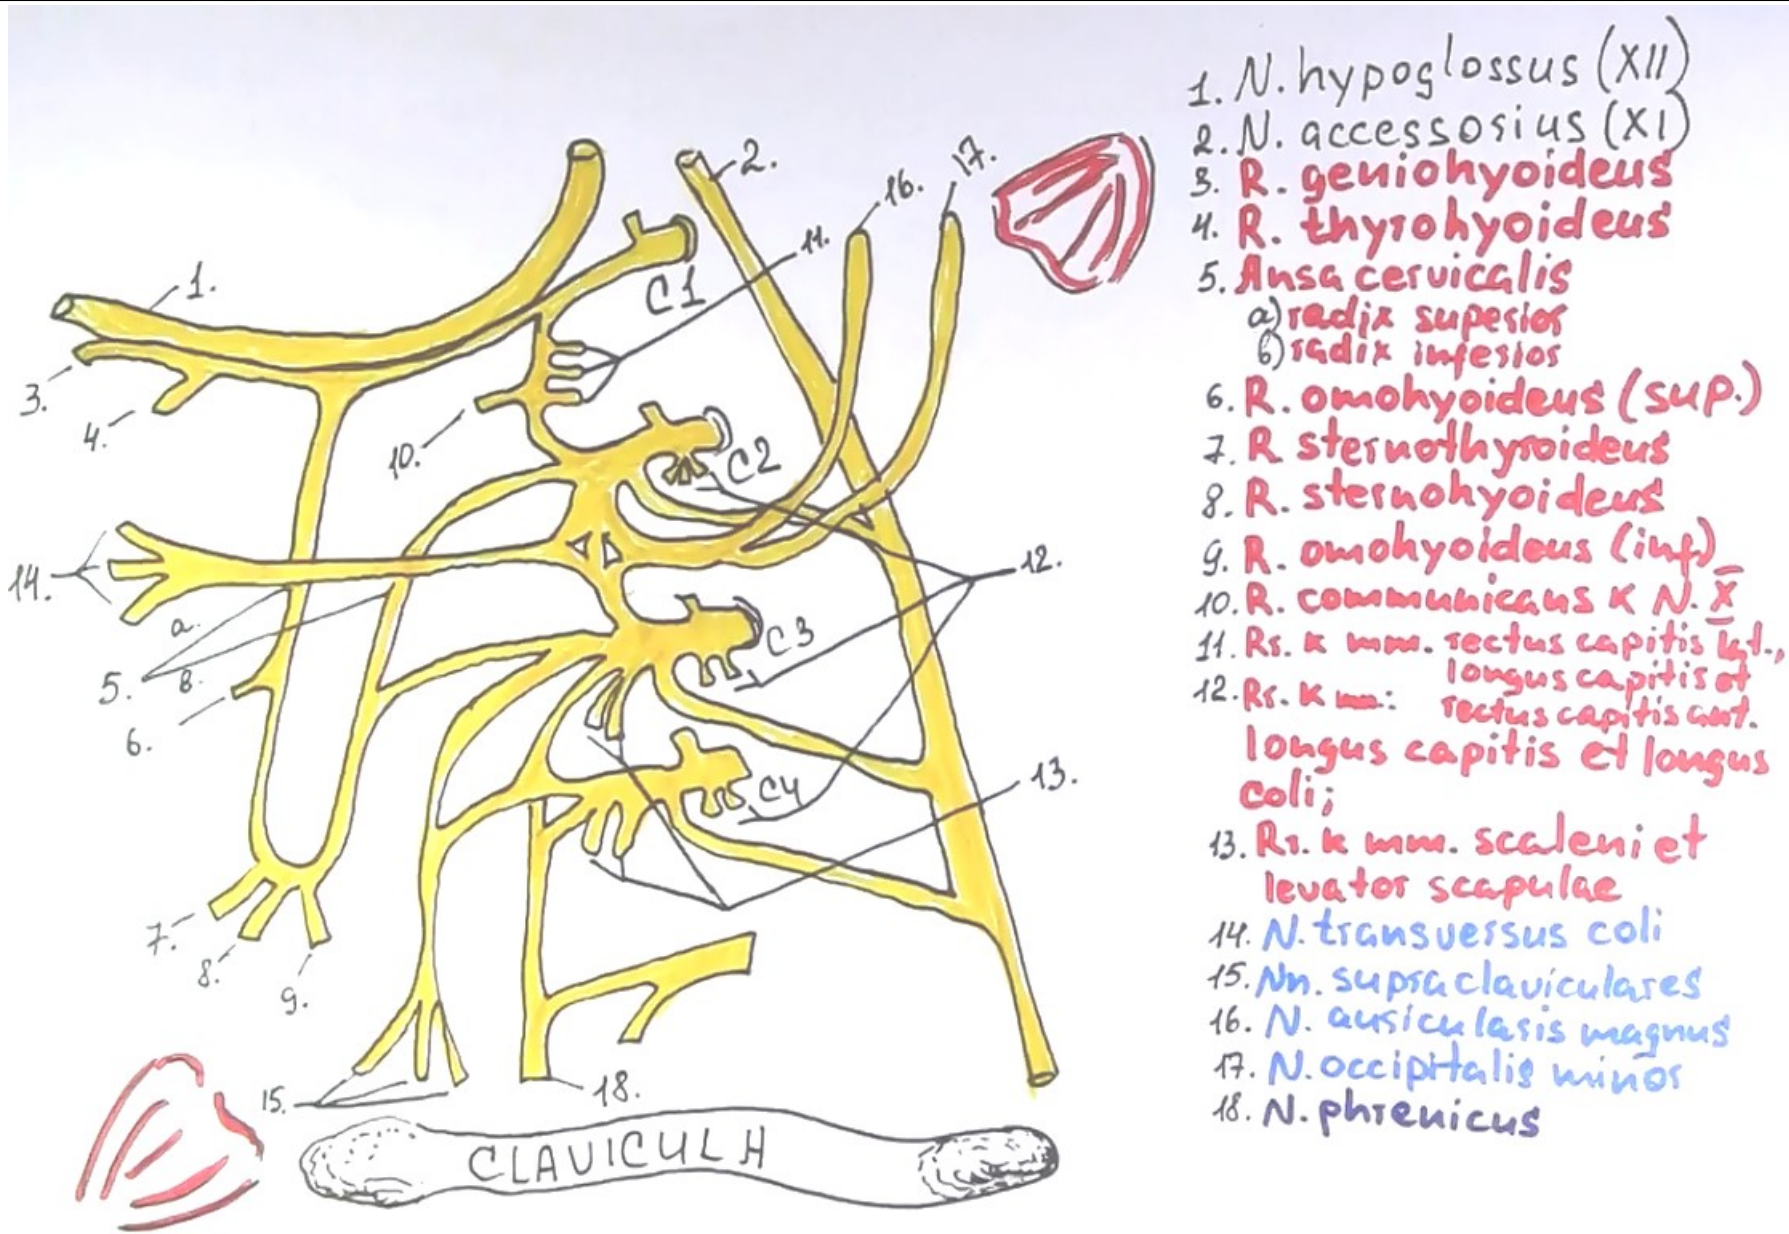 1.
2.
16.
17.
11.
C1
3.
4.
10.
C2
14.
12.
a.
5.
в.
C3
6.
C4
13.
7.
8.
9.
15.
18.
CLAVICULA
1. N. hypoglossus (XII)
2. N. accessorius (XI)
3. R. geniohyoideus
4. R. thyrohyoideus
5. Ansa cervicalis
a) radix superior
б) radix inferior
6. R. omohyoideus (sup.)
7. R sternothyroideus
8. R. sternohyoideus
9. R. omohyoideus (inf)
10. R. communicans к N. X
11. Rr. к mm. rectus capitis lat.,
longus capitis et
rectus capitis ant.
12. Rr. к mm:
longus capitis et longus
coli;
13. Rr. к mm. scaleni et
levator scapulae
14. N. transversus coli
15. Nn. supraclaviculares
16. N. auricularis magnus
17. N. occipitalis minor
18. N. phrenicus